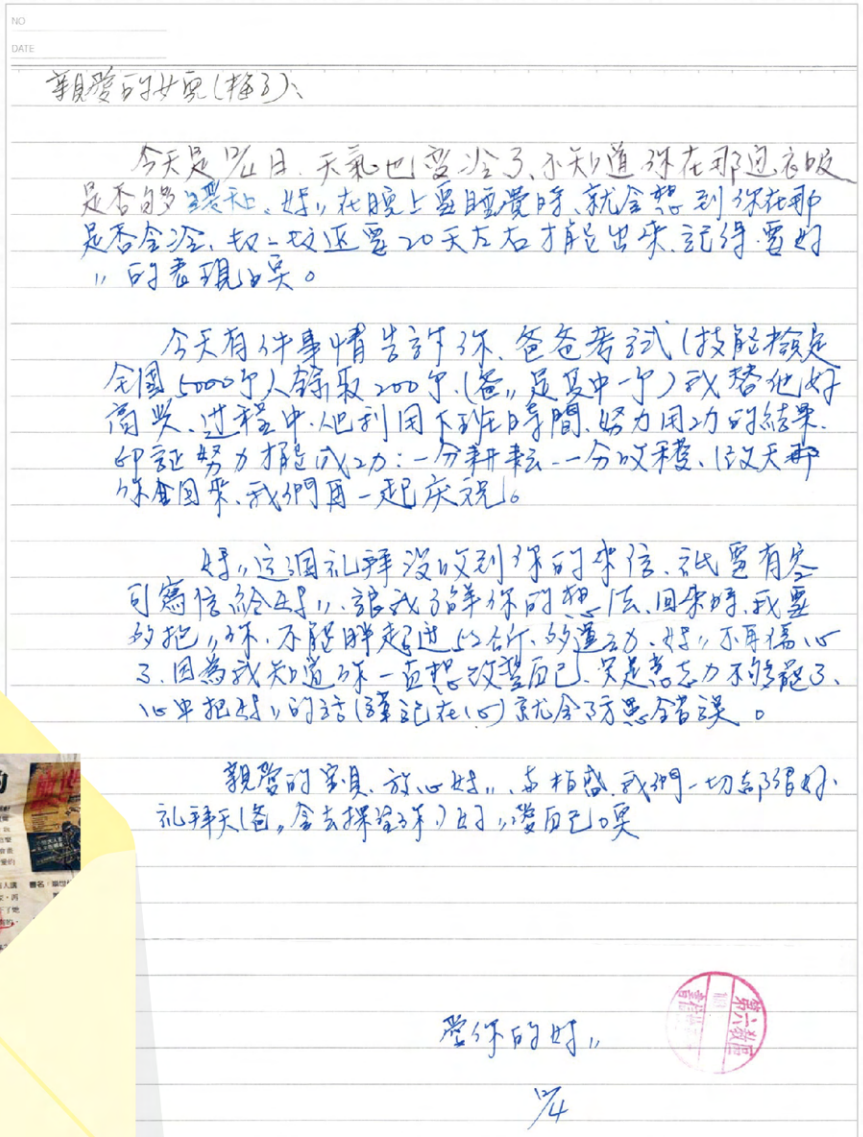 NO
DATE
親愛的女兒(
今天是12/4日、天氣也變冷了、不知道你在那邊衣服
是否够暖和、媽〃在晚上要睡覺時、就会想到你在那
是否会冷、 还要20天左右才能出來、記得要好
〃的表現哦。
今天有件事情告訴你、爸爸考試(技能檢定
全國5000个人錄取200个、(爸〃是其中一个)我替他好
高興、过程中、他利用下班時間、努力用功的結果、
印証努力才能成功:一分耕耘、一分收穫、改天
你回來、我們再一起庆祝。
媽〃这個礼拜没收到你的來信、祇要有空
可寫信給媽〃、讓我了解你的想法、回來時、我要
的抱〃你、不能胖起過55公斤、够運动、媽〃不再傷心
了、因為我知道你一直想改變自己、只是意志力不够罷了、
心中把媽〃的話(謹記在心)就会 錯誤。
親愛的寶貝、放心媽〃、 我們一切都很好、
礼拜天(爸〃会去探望你)好〃愛自己哦
愛你的媽〃
12/4
第六教區